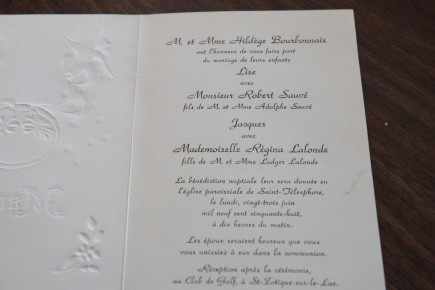 M. et Mme Hildège Bourbonnais
ont l'honneur de vous faire part
du mariage de leurs enfants
Lise
avec
Monsieur Robert Sauvé
fils de M. et Mme Adolphe Sauvé
Jacques
avec
Mademoiselle Régina Lalonde
fille de M. et Mme Ludger Lalonde
La bénédiction nuptiale leur sera donnée en
l'église paroissiale de Saint-Télesphore,
le lundi, vingt-trois juin
mil neuf cent cinquante-huit,
à dix heures du matin.
Les époux seraient heureux que vous
vous unissiez à eux dans la communion.
Réception après la cérémonie,
au Club de Golf, à St-Zotique-sur-le-Lac.